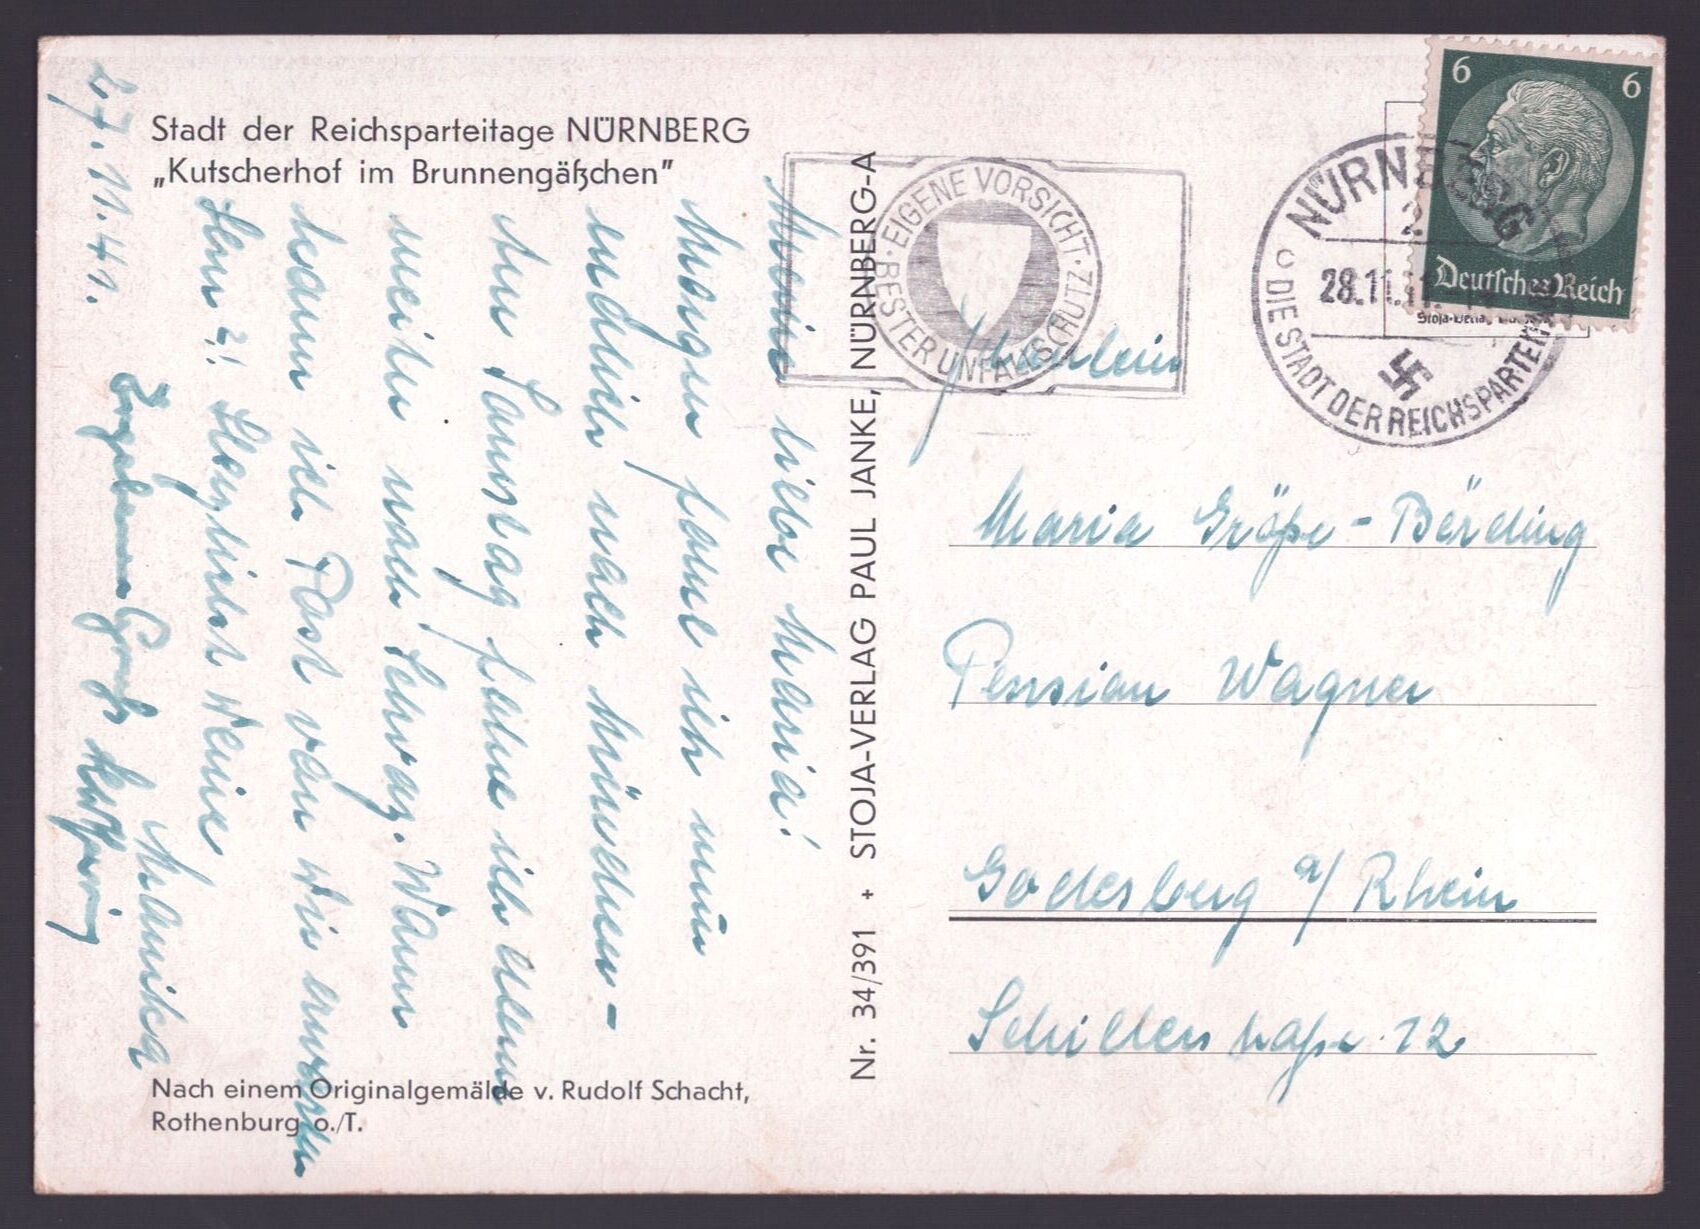 Stadt der Reichsparteitage NÜRNBERG
„Kutscherhof im Brunnengäßchen"
27.11.41.
Meine liebe Maria!
Morgen fahre ich nun
endlich nach München-
Am Samstag fahre ich dann
weiter nach Schwaz. Wann
kann ich Post von Dir erwarten
Herzlichst Deine
Mariken
Nach einem Originalgemälde v. Rudolf Schacht,
Rothenburg o./T.
Nr. 34/391 + STOJA-VERLAG PAUL JANKE, NÜRNBERG-A
EIGENE VORSICHT · BESTER UNFALLSCHUTZ ·
NÜRNBERG
2
28.11.41
DIE STADT DER REICHSPARTEITAGE
6 6
Deutsches Reich
Stoja-Verlag
Fräulein
Maria Größe-Börding
Pension Wagner
Godesberg a/ Rhein
Schillerstraße 12